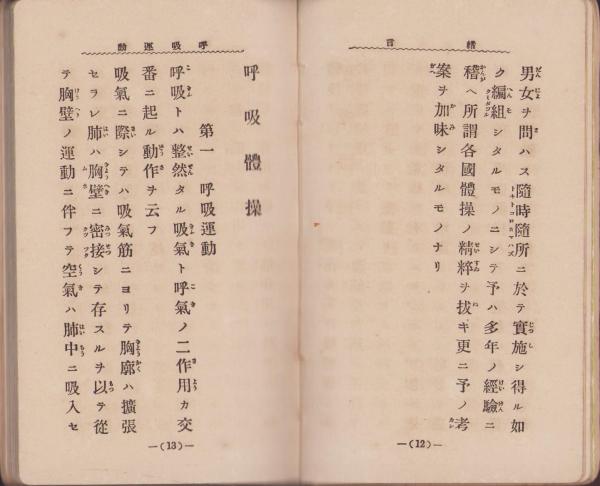 緒言
男女ヲ問ハス隨時隨所ニ於テ實施シ得ル如
ク編組シタルモノニシテ予ハ多年ノ經驗ニ
稽ヘ所謂各國體操ノ精粹ヲ拔キ更ニ予ノ考
案ヲ加味シタルモノナリ
—(12)—
呼吸運動
呼吸體操
第一 呼吸運動
呼吸トハ整然タル吸氣ト呼氣ノ二作用カ交
番ニ起ル動作ヲ云フ
吸氣ニ際シテハ吸氣筋ニヨリテ胸廓ハ擴張
セラレ肺ハ胸壁ニ密接シテ存スルヲ以テ從
テ胸壁ノ運動ニ伴フテ空氣ハ肺中ニ吸入セ
—(13)—